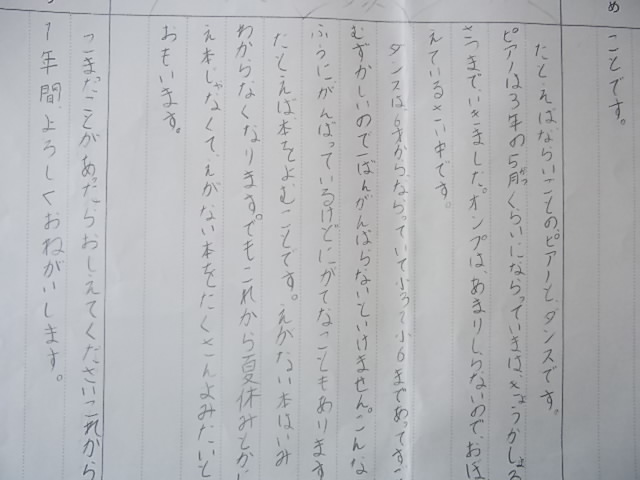 ことです。
たとえばならいごとの、ピアノと、ダンスです。
ピアノは3年の5月がつくらいにならっていまは、きょうかしょ
さつまで、いきました。オンプは、あまりしらないので、おぼ
えているさい中です。
ダンスは6才からならっていて小3で小6まであってすご
むずかしいので一ばんがんばらないといけません。こんな
ふうにがんばっているけどにがてなこともあります
たとえば、本をよむことです。えがない本はいみ
わからなくなります。でもこれから夏休みとかに
え本じゃなくて、えがない本をたくさんよみたいと
おもいます。
こまだことがあったらおしえてくださいこれから
1年間、よろしくおねがいします。